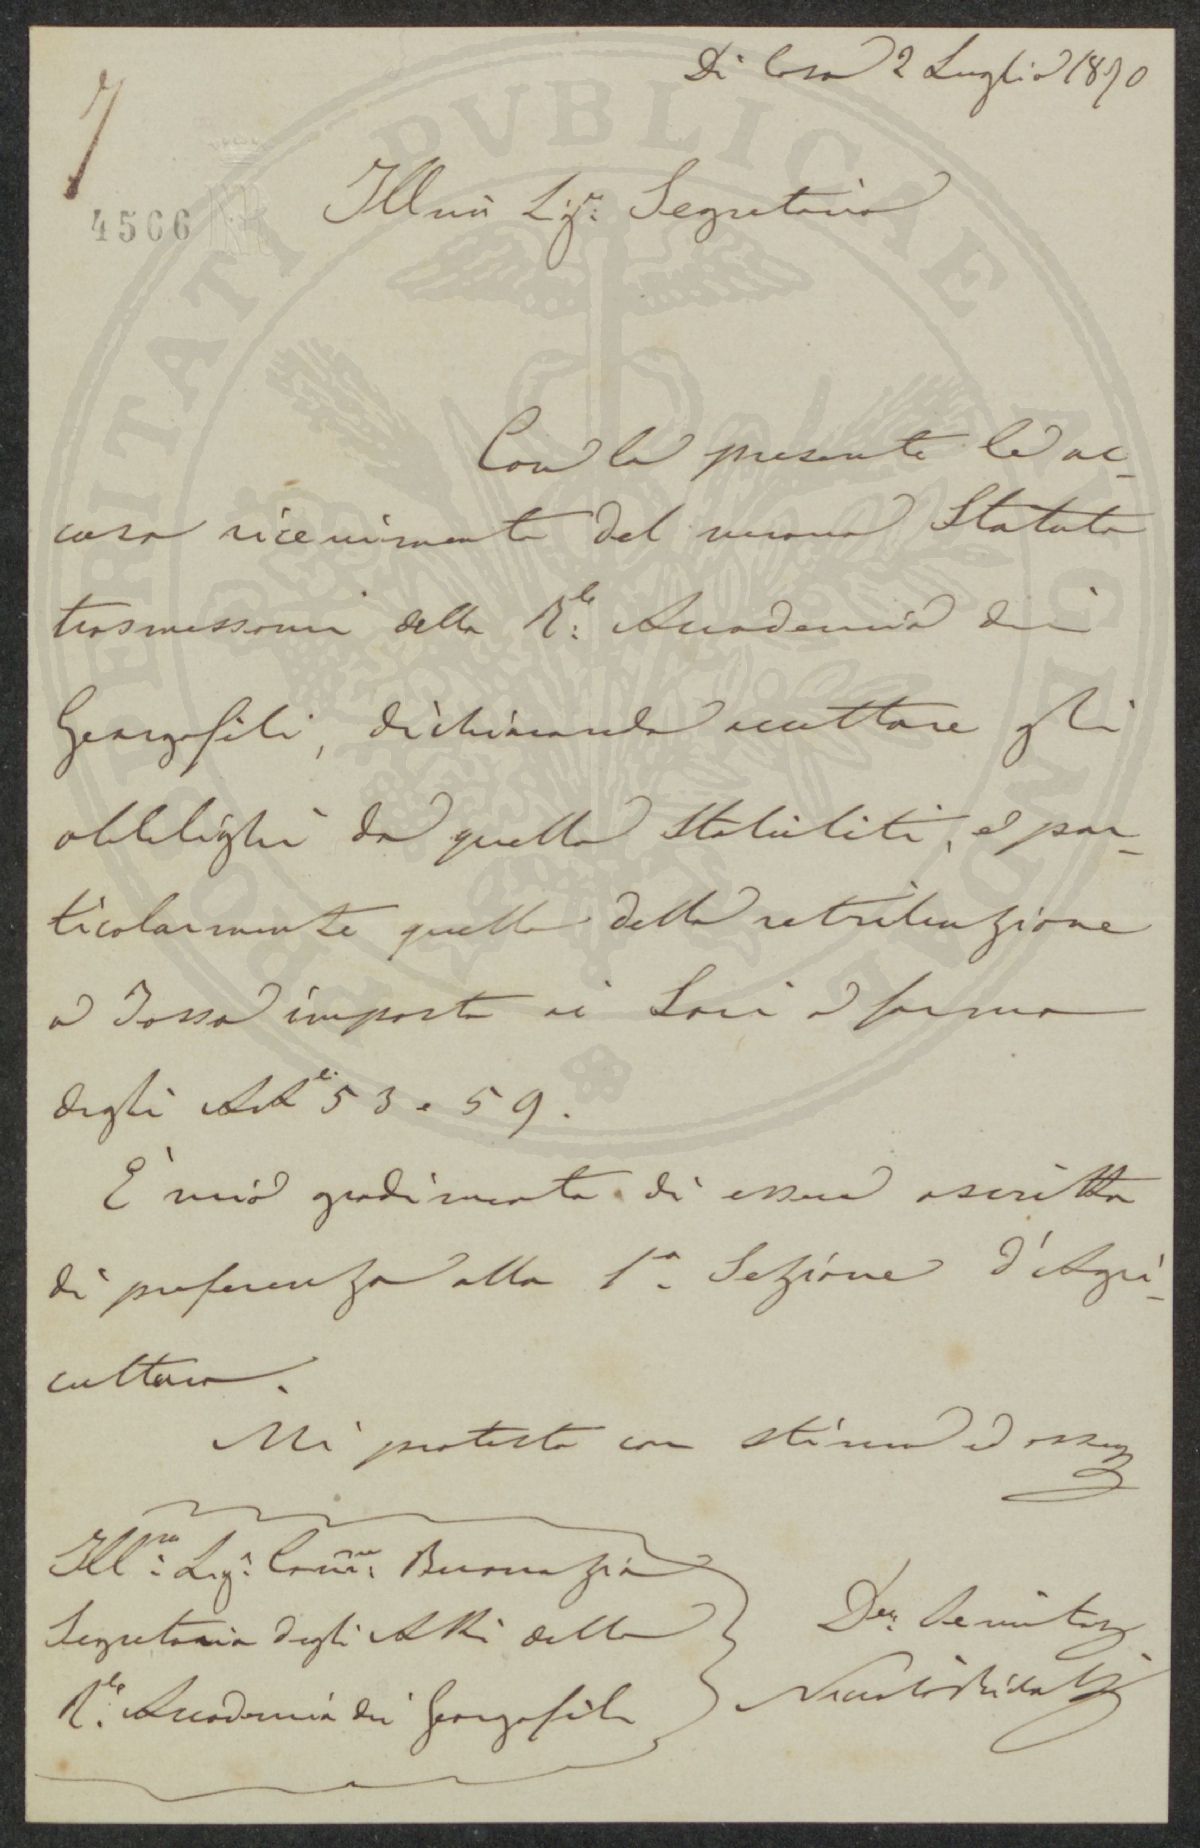 Di Casa 2 Luglio 1890
7
4566
NR
Illmo Sigr. Segretario
Con la presente le ac-
cuso ricevimento del nuovo Statuto
trasmessomi dalla Rle. Accademia dei
Georgofili, dichiarando accettare gli
obblighi da quello stabiliti, e par-
ticolarmente quello della retribuzione
o Tassa imposta ai Soci a forma
degli Arti. 53 e 59.
È mio gradimento di essere ascritto
di preferenza alla 1a. Sezione d'Agri-
cultura.
Mi protesto con stima ed osseq
Illmo. Sigr. Comm. Buonazia
Segretario degli Atti della
Rle. Accademia dei Georgofili
Dev. Servitore
Niccolò Ridolfi
PROSPERITATI PVBLICAE AVGENDAE